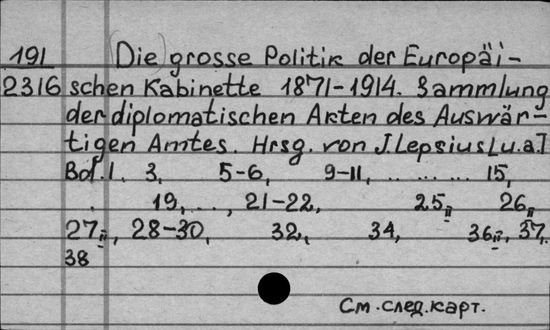 191 (Die) grosse Politik der Europäi-
2316 schen Kabinette 1871-1914. Sammlung
der diplomatischen Akten des Auswär-
tigen Amtes. Hrsg. von J. Lepsius [u.a.]
Bd. 1, 3, 5-6, 9-11, .. ... ... 15,
. 19, . .., 21-22, 25 II 26 II
27 II, 28-30, 32, 34, 36 II, 37,
38
См. след. карт.